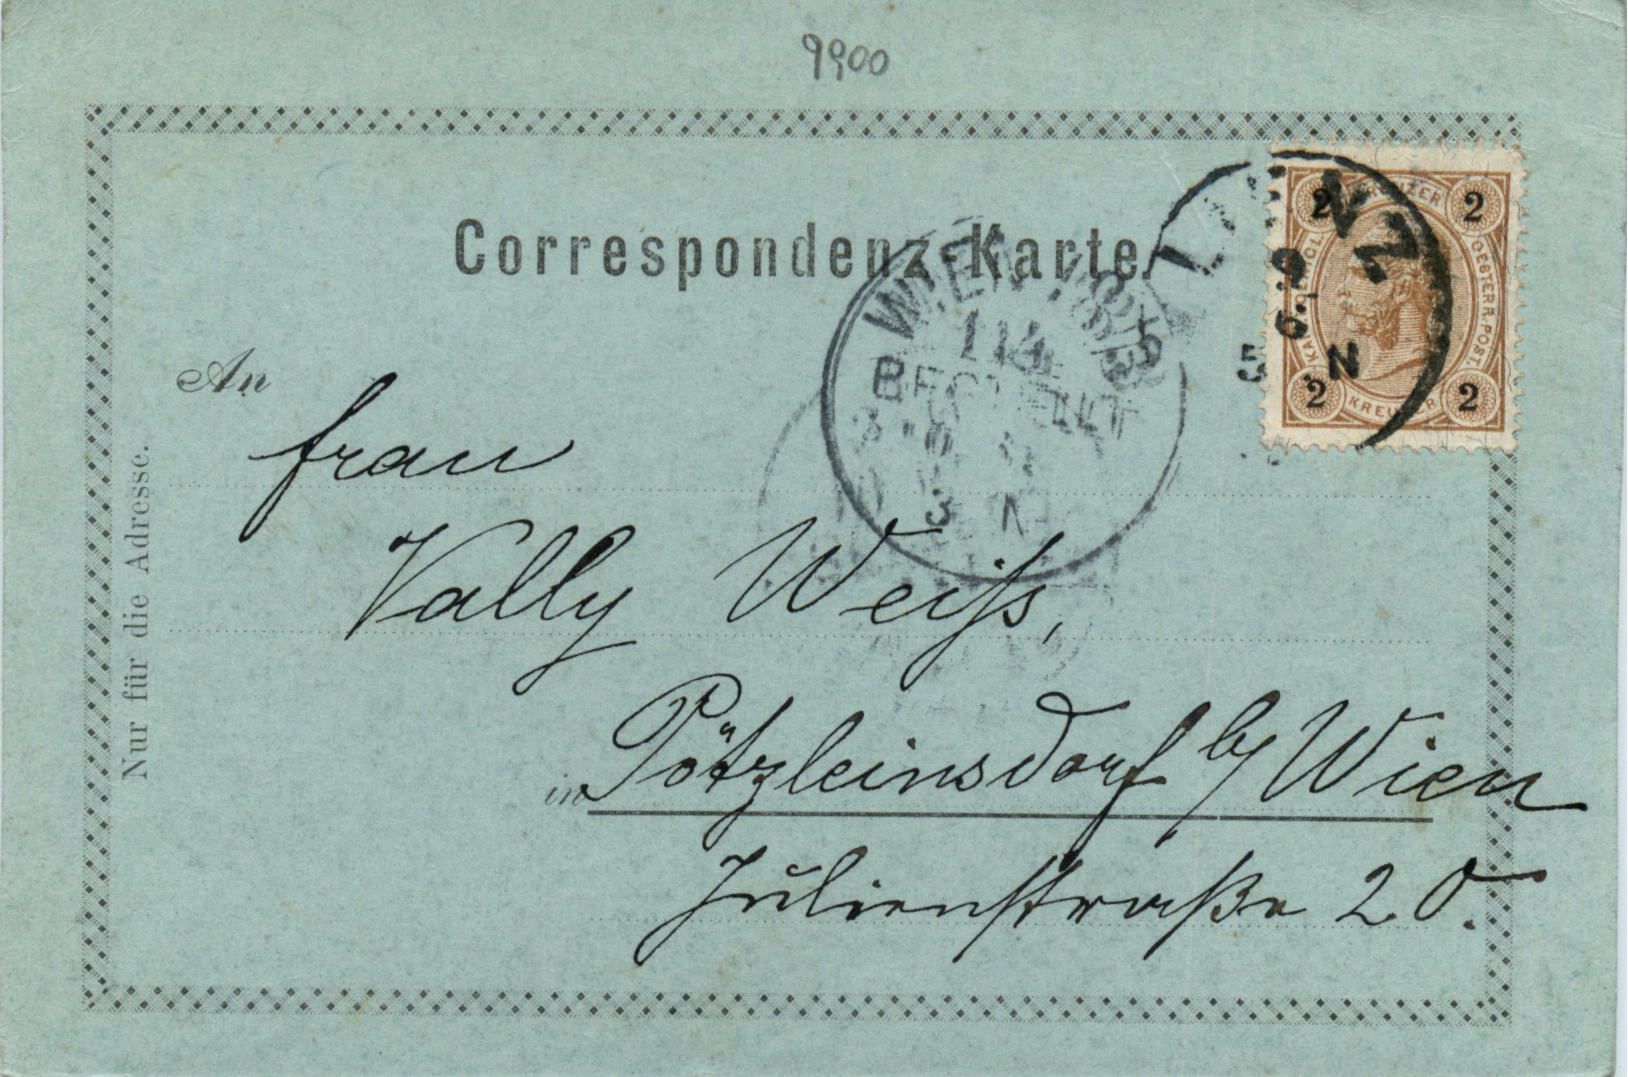 9900
Correspondenz-Karte.
LIENZ
5 N
WIEN
BESTELLT
3 N
2 KREUZER 2
KAIS. KÖNIGL. OESTERR. POST.
2 KREUZER 2
An
Nur für die Adresse.
Frau
Vally Weiss,
in Pötzleinsdorf b/ Wien
Julienstraße 20.